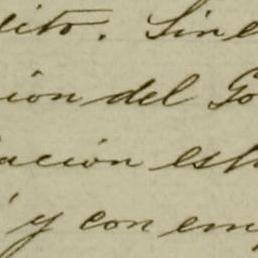 lito. Sin e
ion del Go
iacion est
y con em